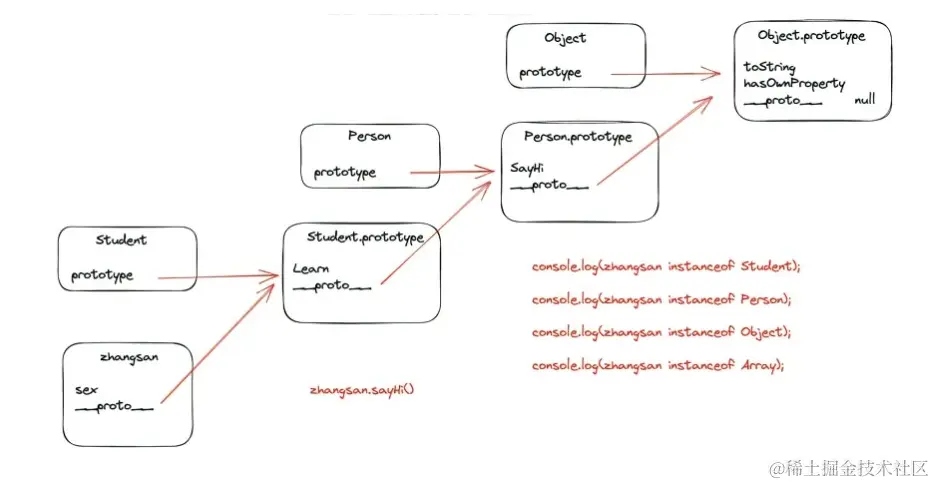 Object
prototype
Object.prototype
toString
hasOwnProperty
__proto__ null
Person
prototype
Person.prototype
SayHi
__proto__
Student
prototype
Student.prototype
Learn
__proto__
zhangsan
sex
__proto__
zhangsan.sayHi()
console.log(zhangsan instanceof Student);
console.log(zhangsan instanceof Person);
console.log(zhangsan instanceof Object);
console.log(zhangsan instanceof Array);
@稀土掘金技术社区